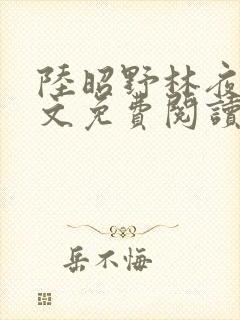 陸昭野林夜
文免費閱讀
岳不悔